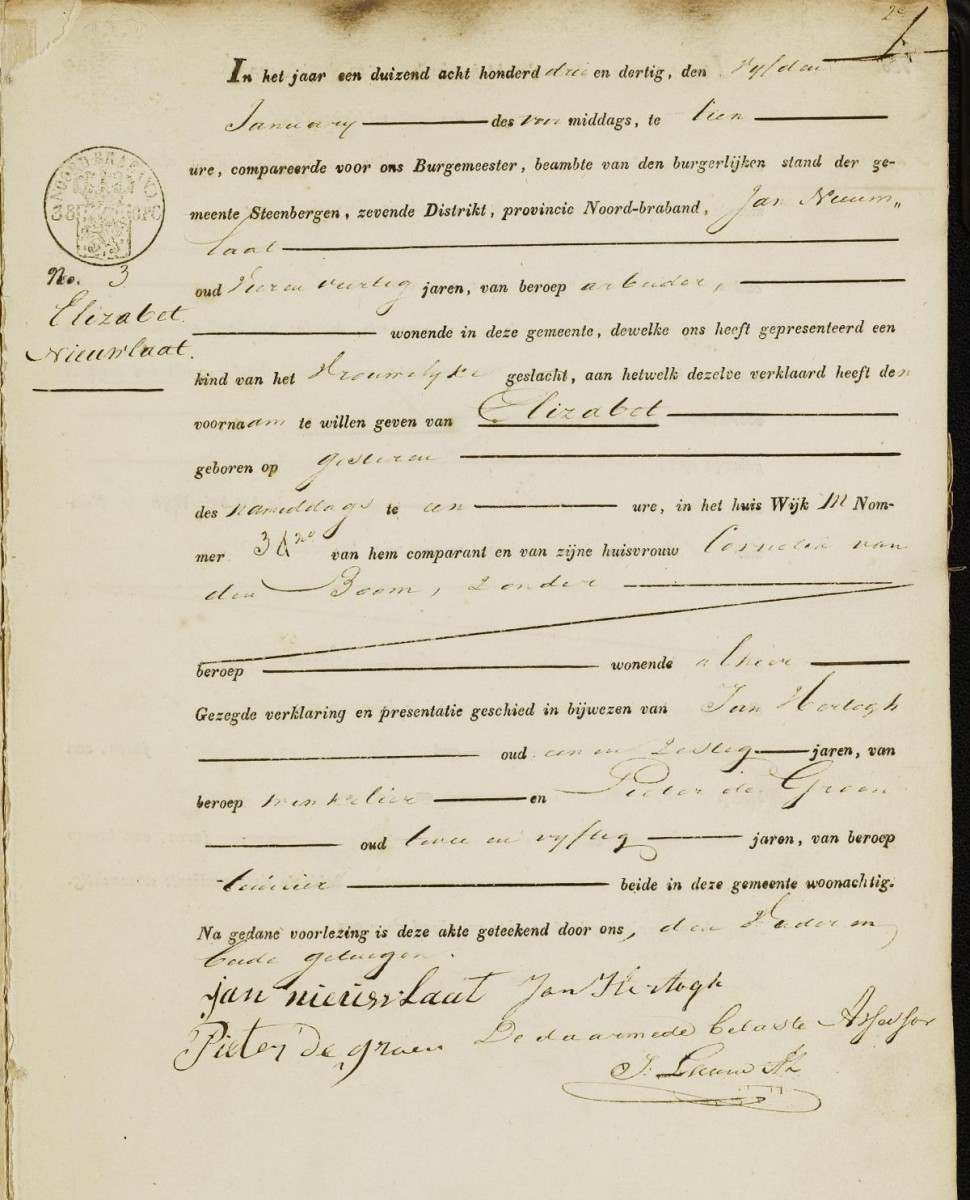 2e
In het jaar een duizend acht honderd drie en dertig, den Vyfden
January des voor middags, te tien
ure, compareerde voor ons Burgemeester, beambte van den burgerlijken stand der ge-
meente Steenbergen, zevende Distrikt, provincie Noord-braband, Jan Nieuw„
laat
No. 3
oud Vier en veertig jaren, van beroep arbeider,
Elizabet
Nieuwlaat.
wonende in deze gemeente, dewelke ons heeft gepresenteerd een
kind van het Vrouwelyke geslacht, aan hetwelk dezelve verklaard heeft den
voornaam te willen geven van Elizabet
geboren op gisteren
des namiddags te een ure, in het huis Wijk M Nom-
mer 38 van hem comparant en van zijne huisvrouw Cornelia van
den Boom, zonder
beroep wonende alhier
Gezegde verklaring en presentatie geschied in bijwezen van Jan Hertogh
oud een en zestig jaren, van
beroep winkelier en Pieter de Groen
oud twee en vyftig jaren, van beroep
tuinier beide in deze gemeente woonachtig.
Na gedane voorlezing is deze akte geteekend door ons, den Vader en
beide getuigen.
jan nieuwlaat Jan Hertogh
Pieter De groen De daarmede belaste Assessor